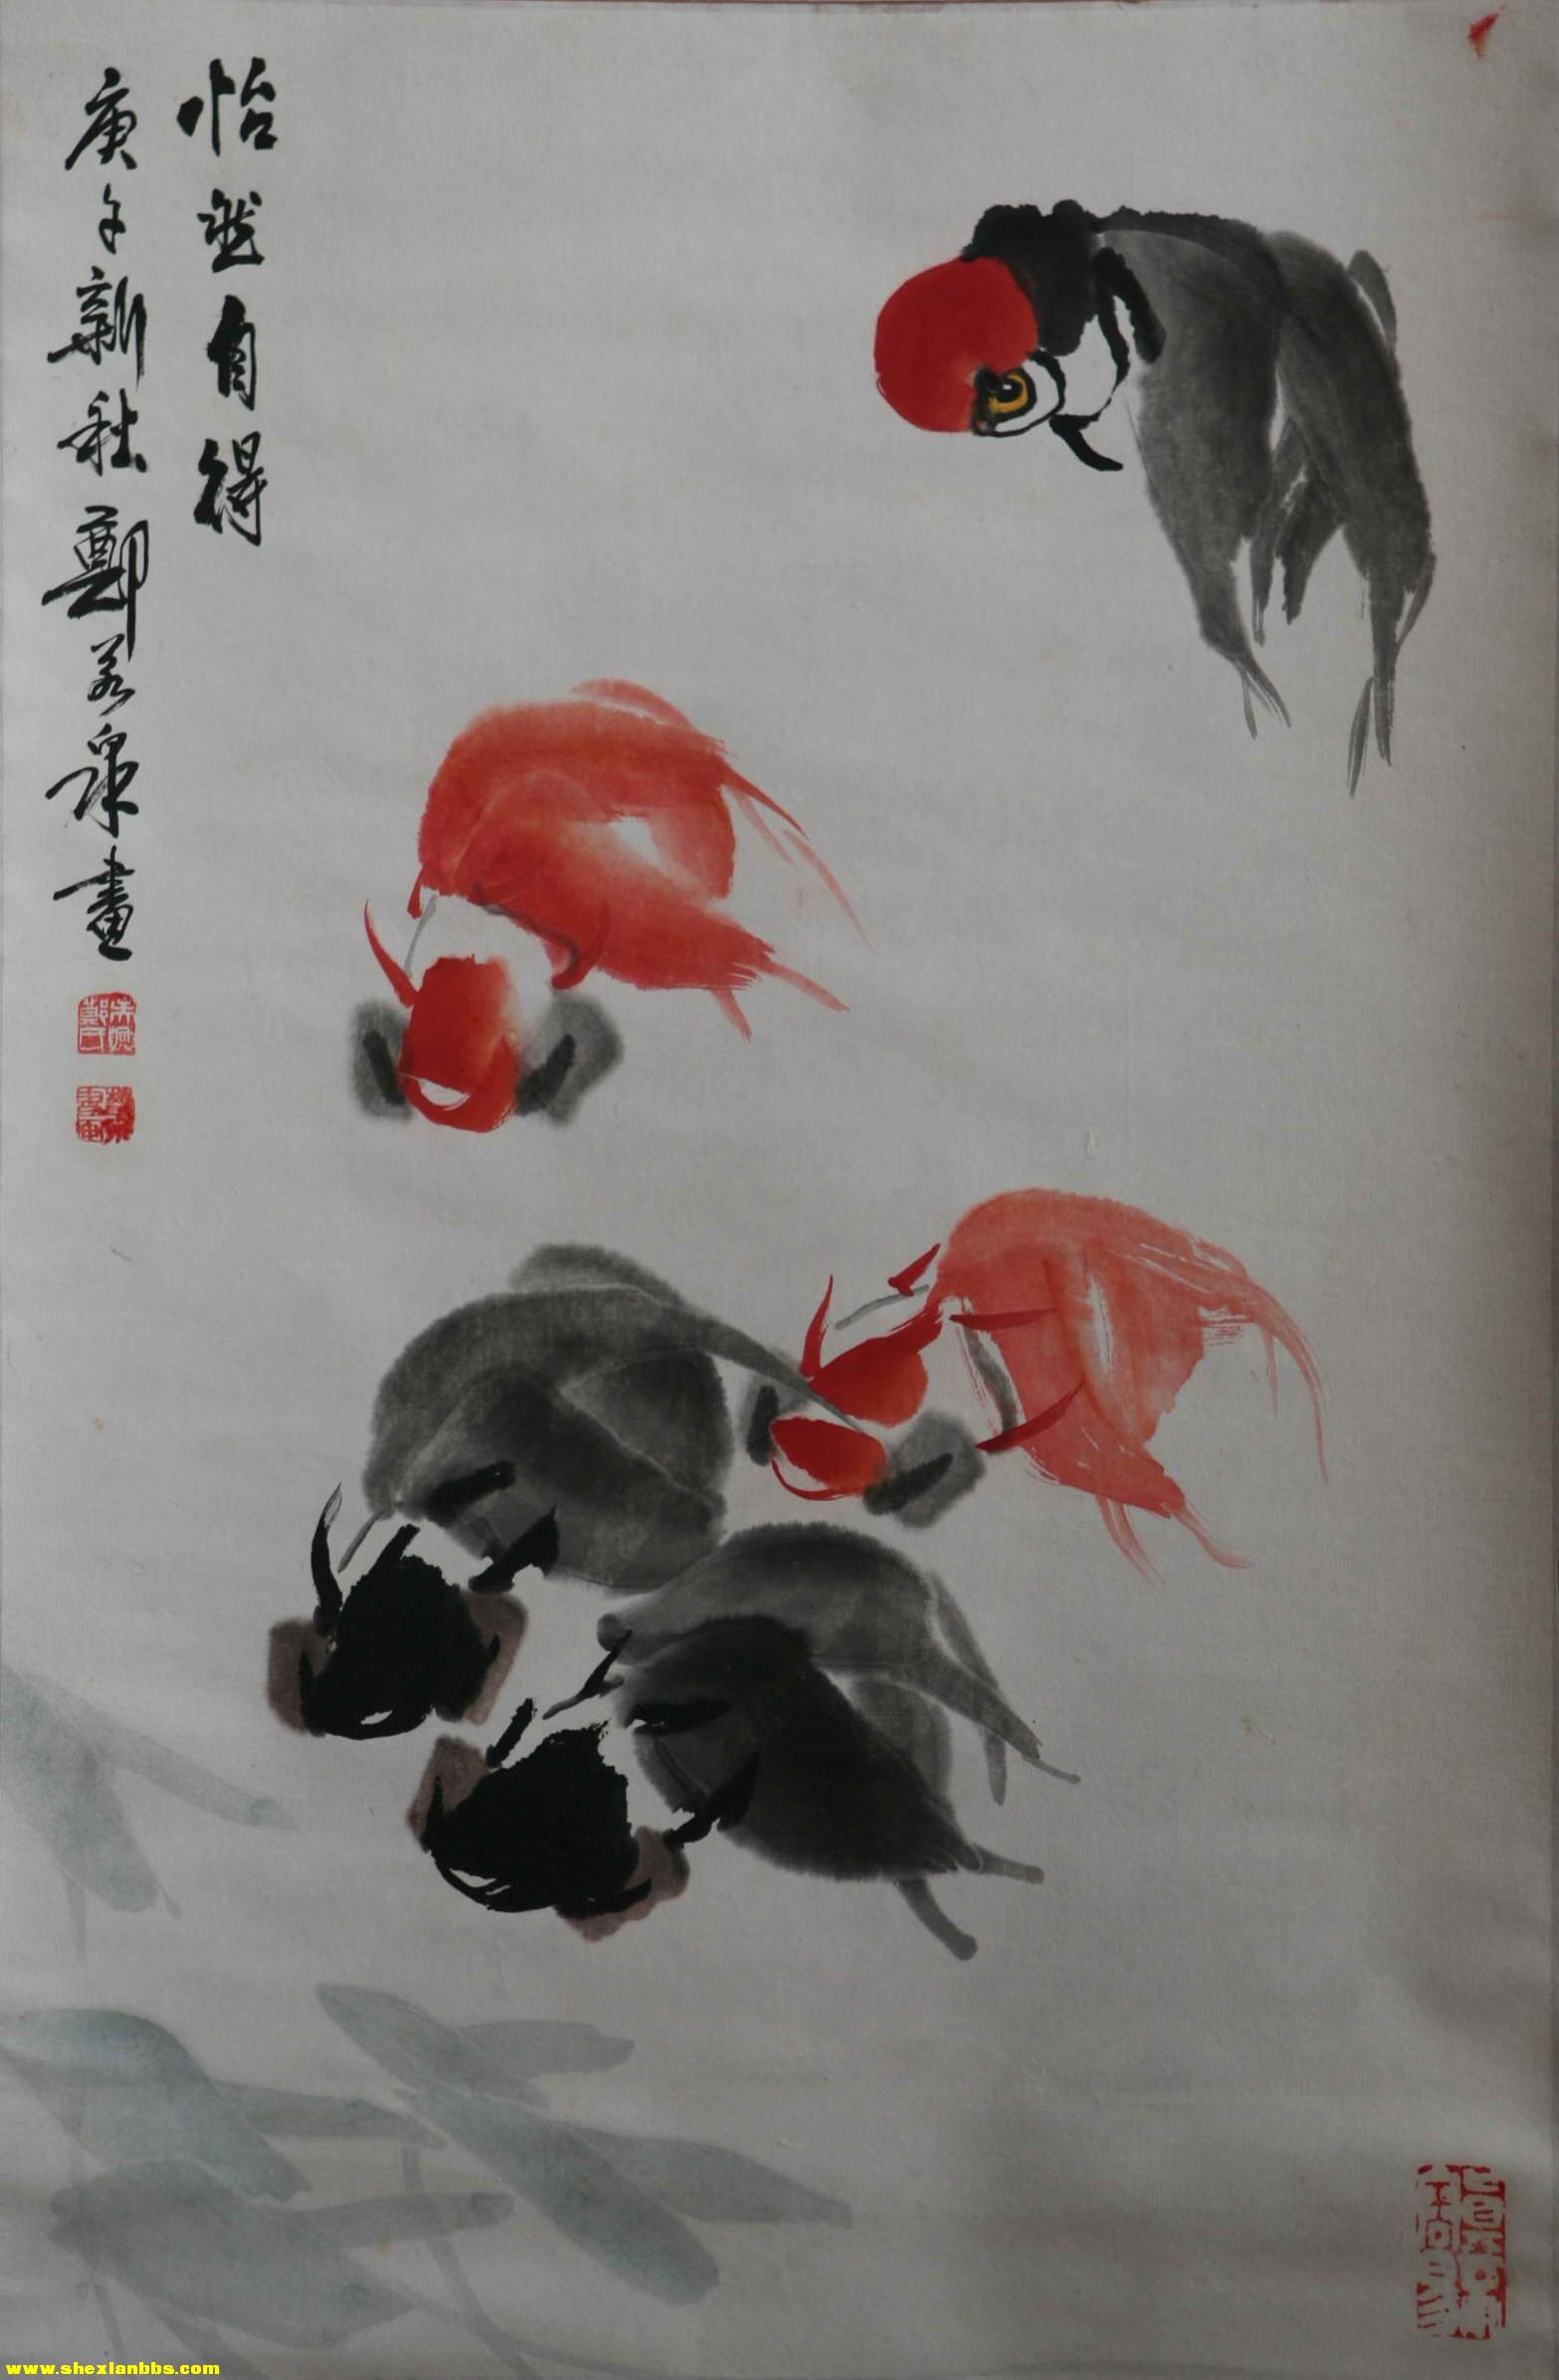 怡然自得
庚午新秋鄭若泉畫
www.shexianbbs.com